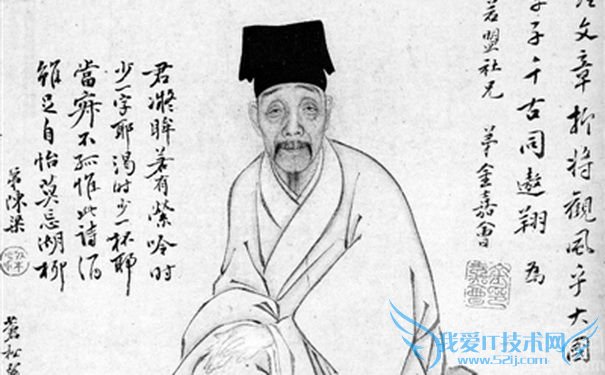 文章抑將觀風乎大國
子千古同遨翔為
若盟社兄 弟金嘉會
君凝眸若有縈吟時
少一字耶渴時少一杯耶
當不孤惟此詩酒
雖足自怡莫忘湖柳
弟陳梁
我爱IT技术网
www.52ij.com